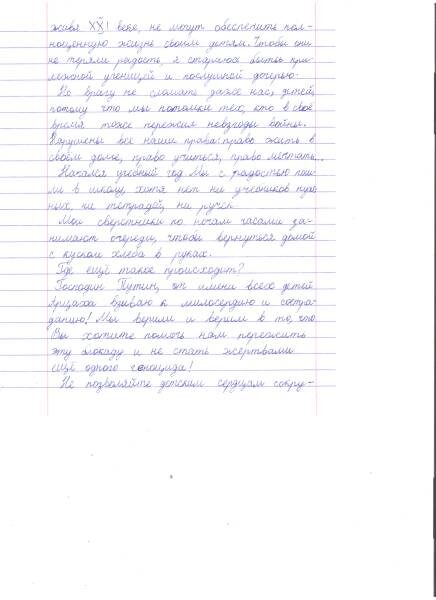 живя XXI веке, не могут обеспечить пол-
ноценную жизнь своим детям. Чтобы они
не теряли радость, я стараюсь быть при-
лежной ученицей и послушной дочерью.
Но врагу не сломать даже нас, детей,
потому что мы потомки тех, кто в своё
время тоже пережил невзгоды войны.
Нарушены все наши права: право жить в
своём доме, право учиться, право мечтать...
Начался учебный год. Мы с радостью пош-
ли в школу, хотя нет ни учебников нуж-
ных, ни тетрадей, ни ручек.
Мои сверстники по ночам часами за-
нимают очереди, чтобы вернуться домой
с куском хлеба в руках.
Где ещё такое происходит?
Господин Путин, от имени всех детей
Арцаха взываю к милосердию и состра-
данию! Мы верили и верим в то, что
Вы хотите помочь нам пережить
эту блокаду и не стать жертвами
ещё одного геноцида!
Не позволяйте детским сердцам сокру-